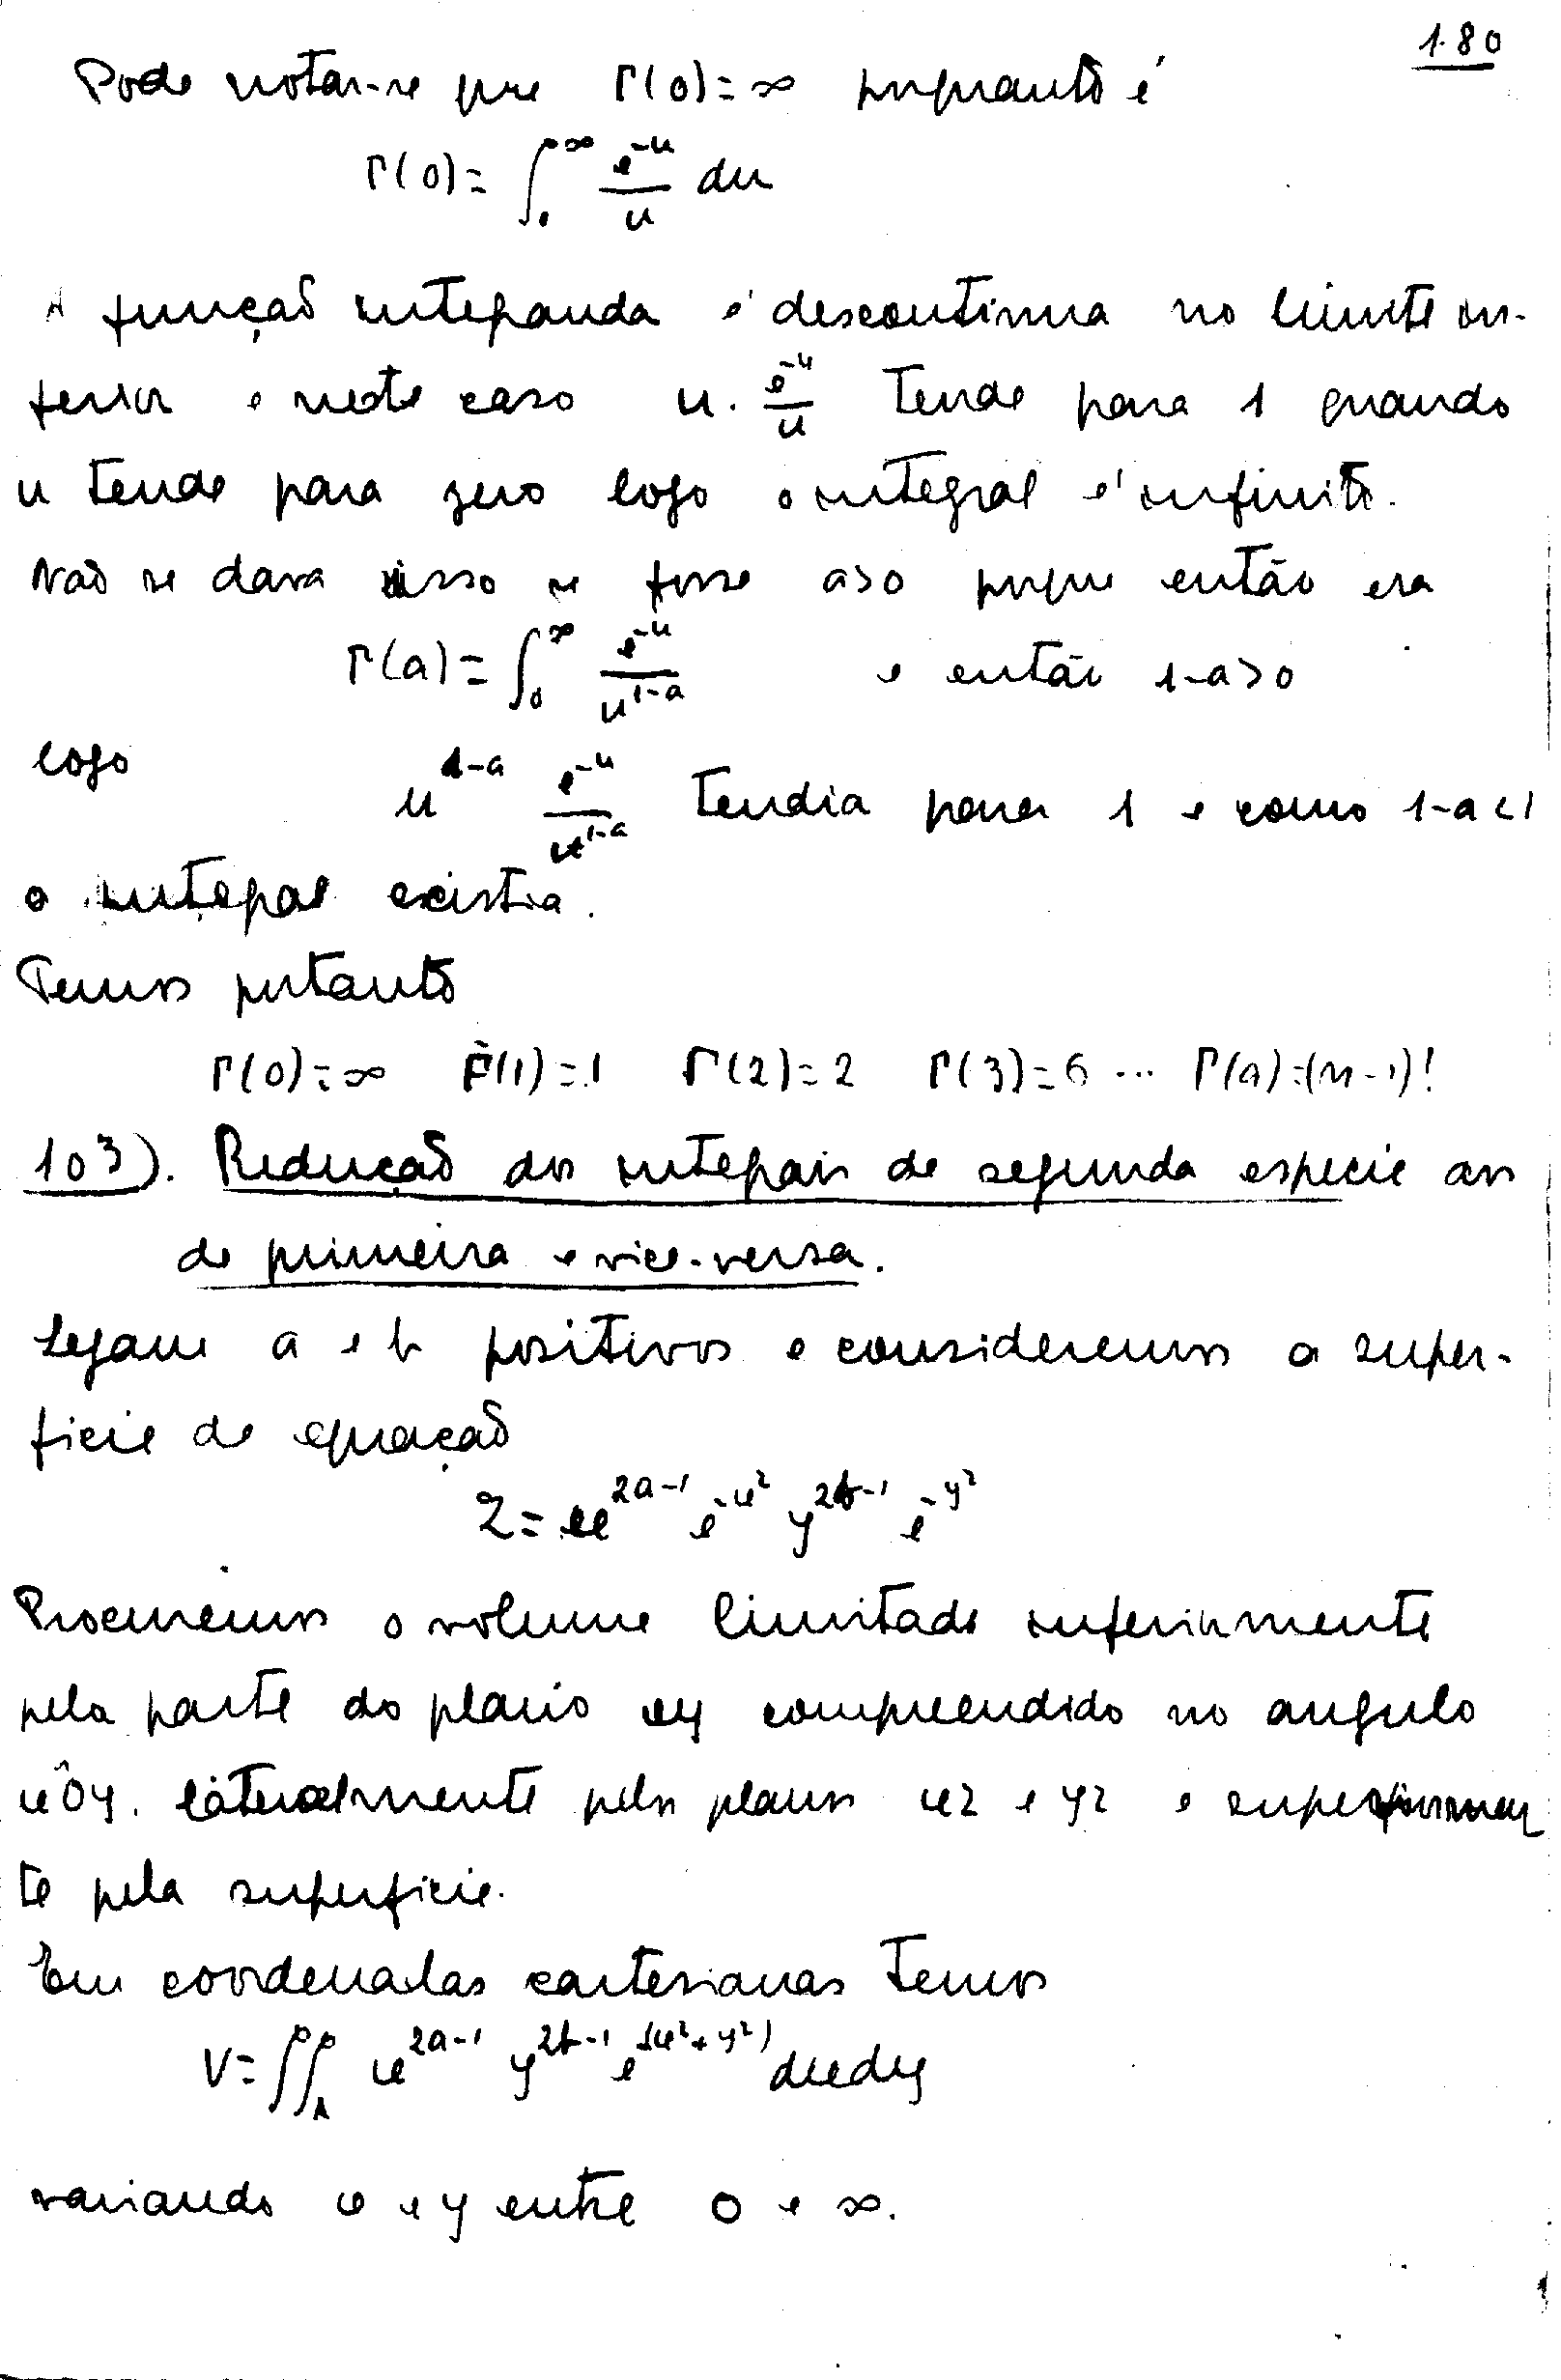 180
Pode notar-se que Γ(0)=∞ porquanto é
Γ(0)= ∫₀^∞ e^{-u}/u du
A função integranda é descontinua no limite in-
ferior e neste caso u. e^{-u}/u tende para 1 quando
u tende para zero logo o integral é infinito.
Não se dava isso se fosse a>0 porque então era
Γ(a)= ∫₀^∞ e^{-u}/u^{1-a} e então 1-a>0
logo u^{1-a} e^{-u}/u^{1-a} tendia para 1 e como 1-a<1
o integral existia.
Temos portanto
Γ(0)=∞ Γ(1)=1 Γ(2)=2 Γ(3)=6 ... Γ(a)=(n-1)!
103). Redução dos integrais de segunda especie aos
de primeira e vice-versa.
Sejam a e b positivos e consideremos a super-
ficie de equação
z= x^{2a-1} e^{-x²} y^{2b-1} e^{-y²}
Procuremos o volume limitado inferiormente
pela parte do plano xy compreendido no angulo
xÔy. lateralmente pelos planos xz e yz e superiormen
te pela superficie.
Em coordenadas cartesianas temos
V= ∫∫_A x^{2a-1} y^{2b-1} e^{-(x²+y²)} dxdy
variando x e y entre 0 e ∞.